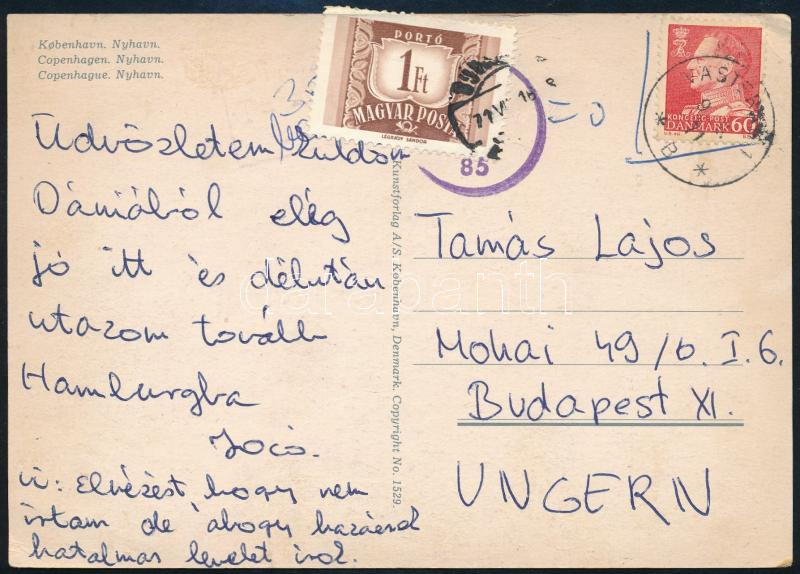 København. Nyhavn.
Copenhagen. Nyhavn.
Copenhague. Nyhavn.
PORTÓ
1 Ft
MAGYAR POSTA
LÉGRÁDY SÁNDOR
85
= 0
VÄSTER
KONGELIG POST
DANMARK 60
Üdvözletem küldöm
Dániából elég
jó itt és délután
utazom tovább
Hamburgba
Jocó.
ui: Elnézést hogy nem
írtam de ahogy hazaérek
hatalmas levelet írok.
Kunstforlag A/S. København, Denmark. Copyright No. 1529.
Tamás Lajos
Mohai 49/b. I. 6.
Budapest XI.
UNGERN
darabanth